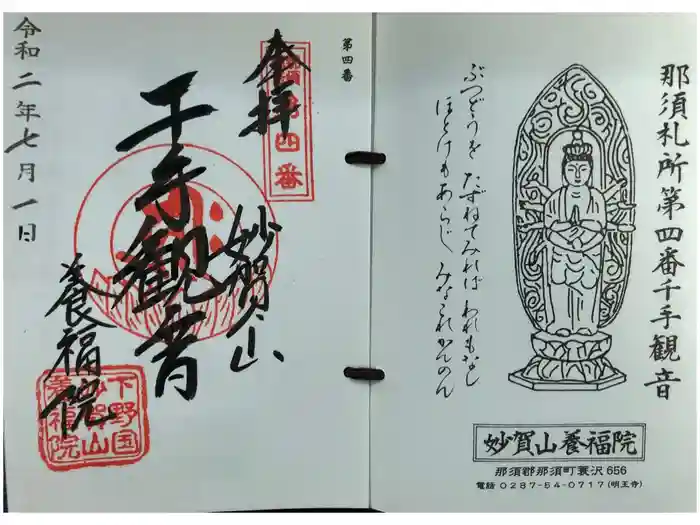 那須札所第四番千手観音
ぶつどうを たずねてみれば われもなし
ほとけもあらじ みなこれかんのん
妙賀山養福院
那須郡那須町簑沢656
電話 0287-54-0717(明王寺)
第四番
奉拝
第四番
妙賀山
千手観音
養福院
下野国
妙賀山
養福院
令和二年七月一日